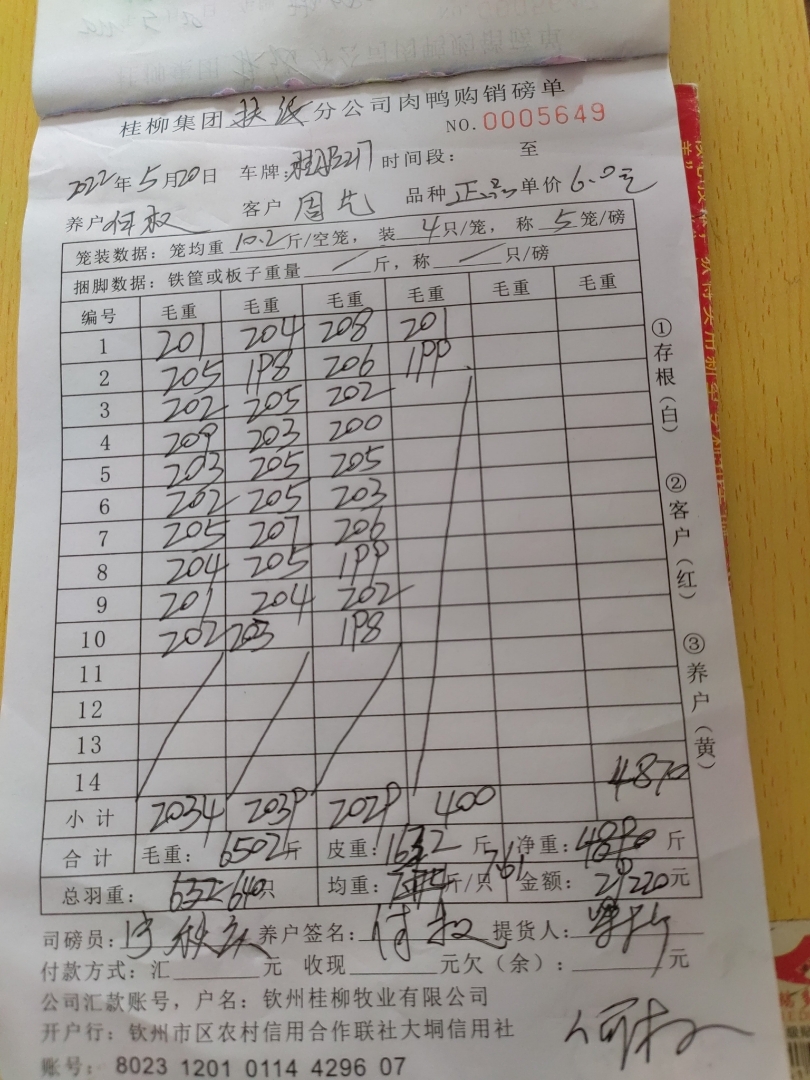 桂柳集团 分公司肉鸭购销磅单
NO.0005649
2022年5月20日 车牌: 时间段: 至
养户 何权 客户 周先 品种 正品 单价 6.0元
笼装数据:笼均重10.2斤/空笼,装4只/笼,称5笼/磅
捆脚数据:铁筐或板子重量/斤,称/只/磅
编号 毛重 毛重 毛重 毛重 毛重 毛重
1 201 204 208 201
2 205 198 206 199
3 202 205 202
4 209 203 200
5 203 205 205
6 202 205 203
7 205 207 206
8 204 205 199
9 201 204 202
10 202 203 198
11
12
13
14 4870
小计 2034 2039 2029 400
合计 毛重:6502斤 皮重:1632斤 净重: 斤
总羽重: 640只 均重: 斤/只 761 金额:29220元
司磅员: 养户签名: 何权 提货人:
付款方式:汇 元 收现 元欠(余): 元
公司汇款账号,户名:钦州桂柳牧业有限公司
开户行:钦州市区农村信用合作联社大垌信用社
何权
账号:8023 1201 0114 4296 07
①存根(白) ②客户(红) ③养户(黄)